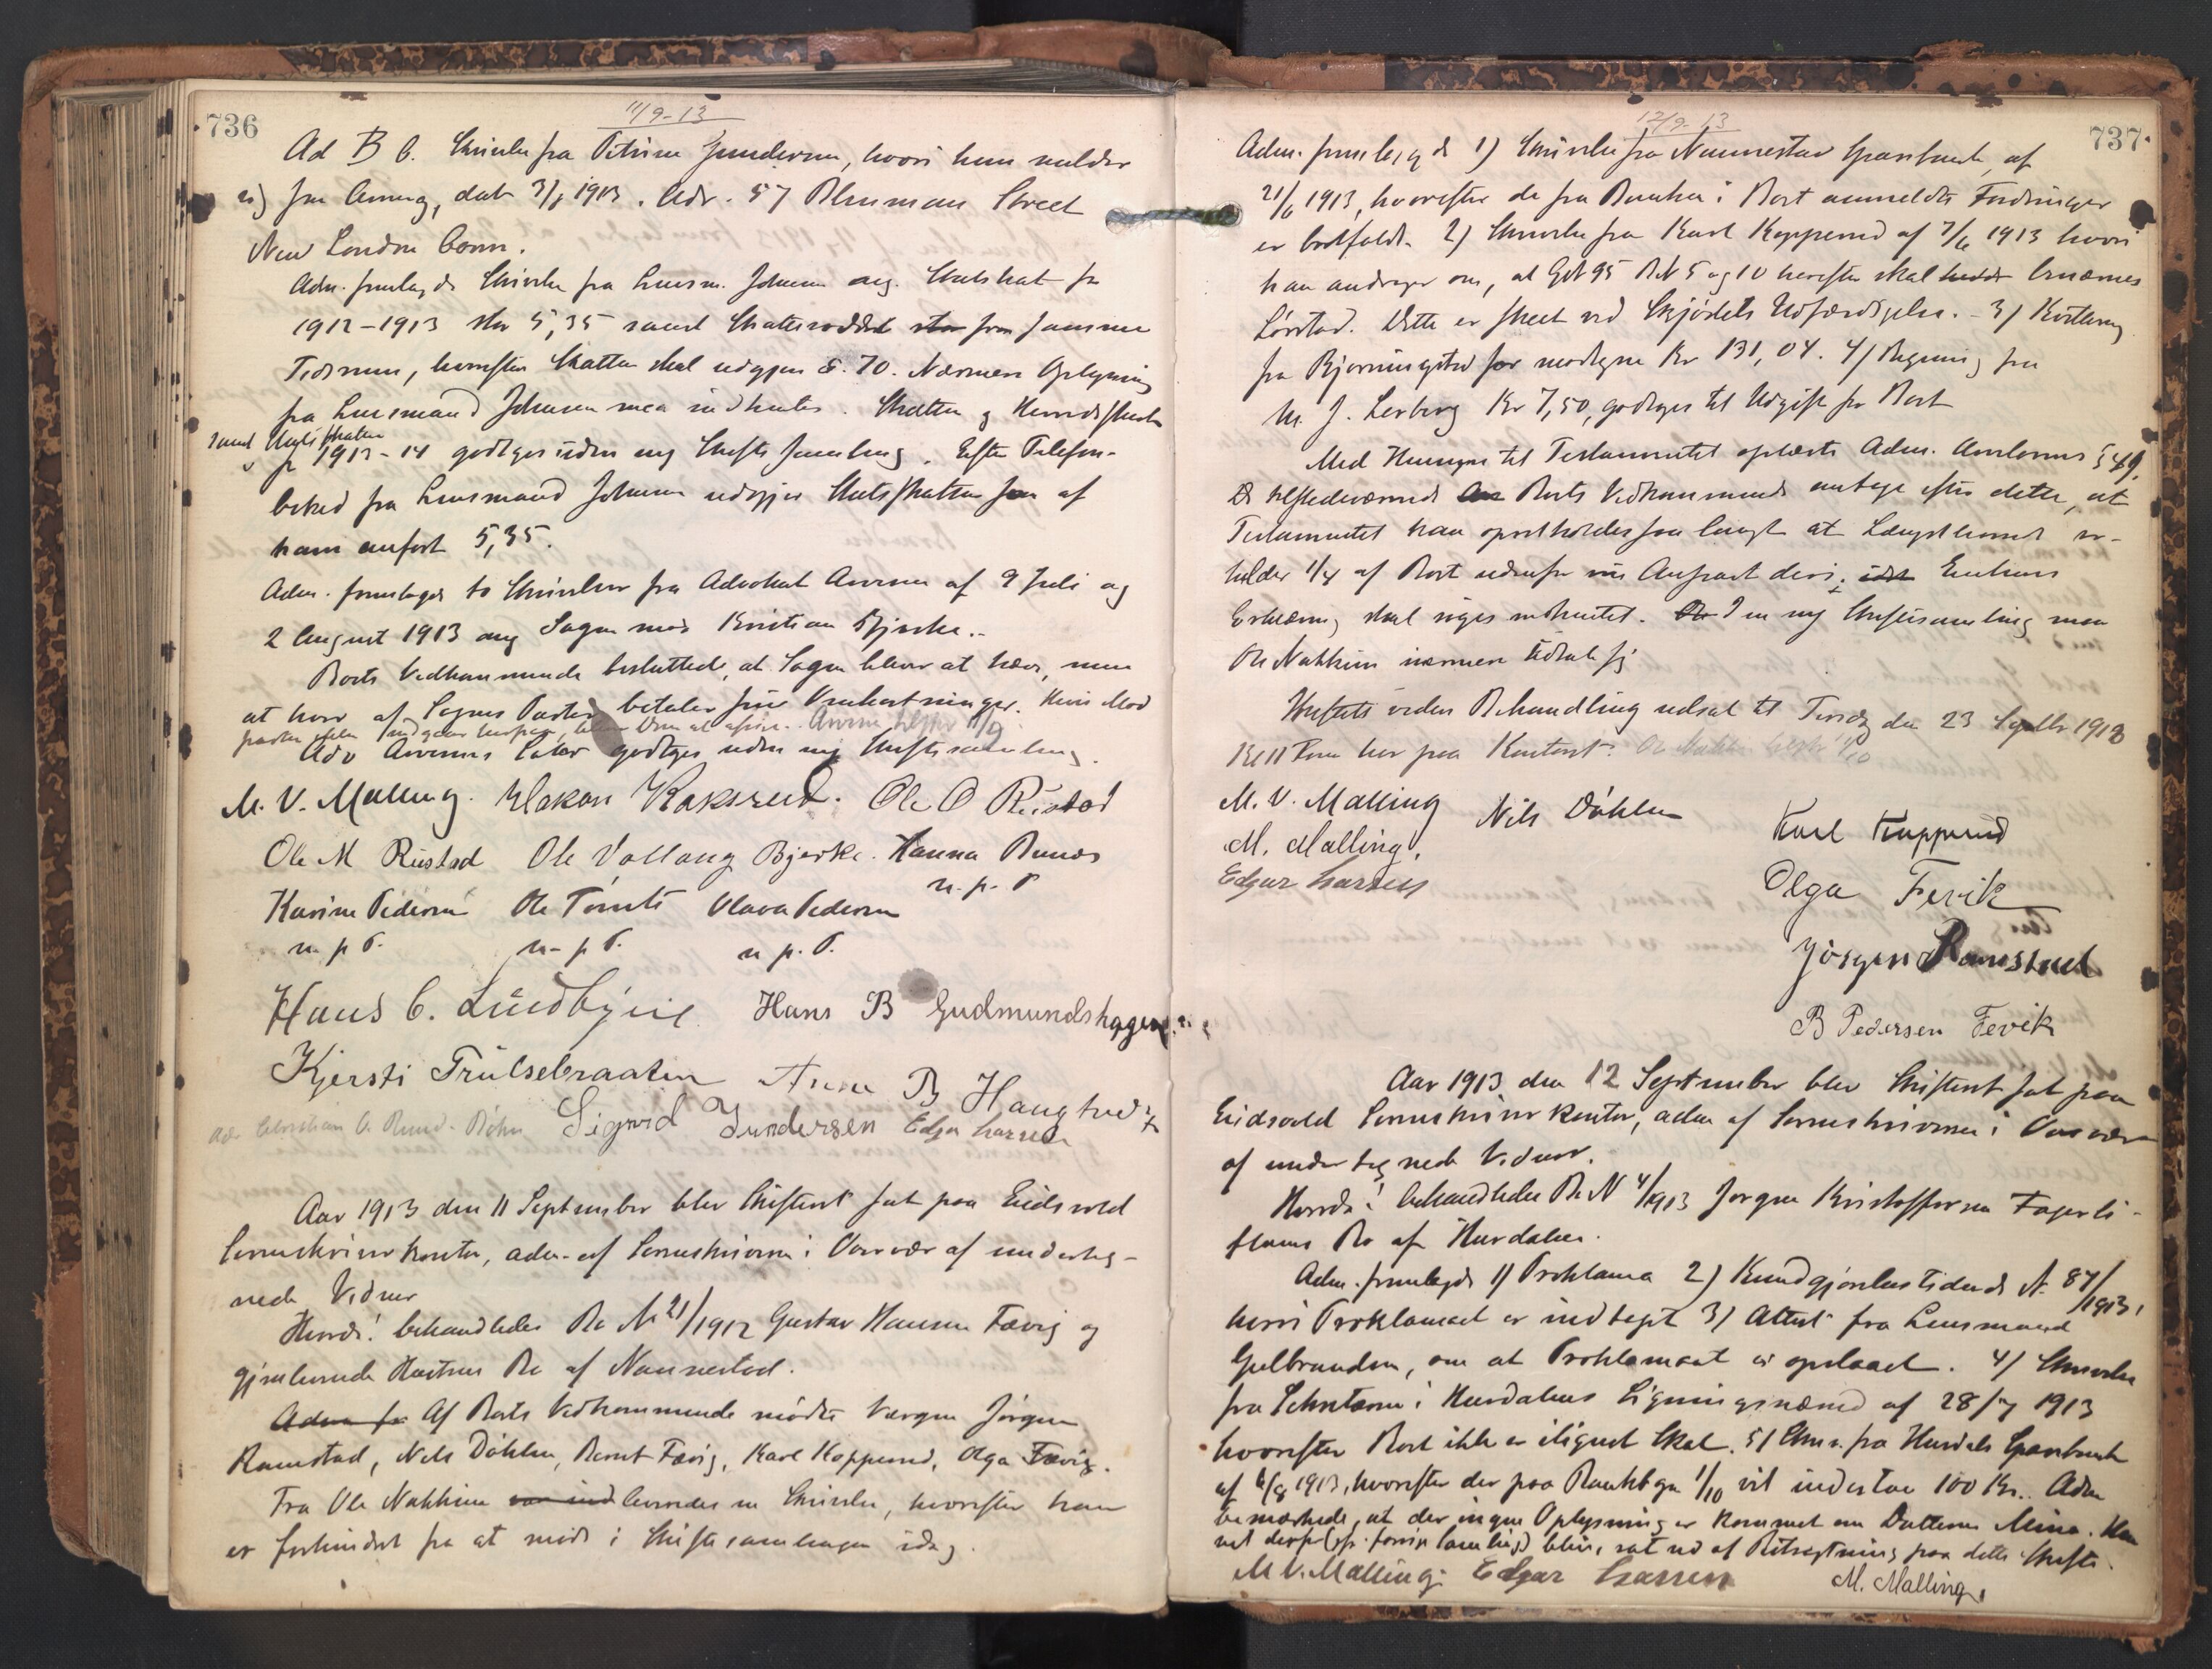 736
11/9-13
Ad B 6. Skrivelse fra Petrine Gundersen, hvori hun melder
sig fra Arving, dat 3/1 1913. Adr. 57 Blinman Street
New London Conn.
Adm. fremlagde Skrivelse fra Lensm. Johnsen ang. Statsskat for
1912-1913 stor 5,35 samt Skatteseddel stor fra samme
Termin, hvorefter Skatten skal udgjøre 8.70. Nærmere Oplysning
fra Lensmand Johnsen maa indhentes. Skatten og Herredsskat
samt Veiskatten
for 1913-14 godtges uden ny Skiftesamling. Efter Telefon-
besked fra Lensmand Johnsen udgjør Statsskatten som af
ham anført 5,35.
Adm. fremlagde to Skrivelser fra Advokat Arnesen af 9 Juli og
2 August 1913 ang Sagen mod Kristian Bjerke.
Boets Vedkommende besluttede, at Sagen bliver at hæve, men
at hver af Sagens Parter betaler sine Omkostninger. Hvis Mod
parten ikke indgaar herpaa, bliver Dom at afsige. Arnesen tilskr 11/9
Adv Arnesens Salær godtges uden ny Skiftesamling.
M. V. Malling. Hakon Raksrud. Ole O Rustad
Ole M Rustad Ole Vollaug Bjerke. Hanna Runds
m. p. P
Karine Pedersen Ole Tømte Olava Pedersen
m. p P. m. p P. m p. P.
Hans C. Lundbýeie Hans B Gudmundshagen.
Kjersti Trulsebraaten Anne B Haugtvedt
Adr Christian A. Rund. Bøhn Sigurd Gundersen Edgar Larsen
Aar 1913 den 11 September blev Skifteret sat paa Eidsvold
Sorenskriverkontor, adm. af Sorenskriveren i Overvær af underteg-
nede Vidner
Hvorda! behandledes Bo N 21/1912 Gustav Hansen Fævig og
gjenlevende Hustrus Bo af Nannestad.
Adm fr Af Boets Vedkommende mødte Værgen Jørgen
Ramstad, Nils Døhlen, Bernt Fævig, Karl Kopperud, Olga Fævig.
Fra Ole Nakkim var ind leveredes en Skrivelse, hvorefter han
er forhindret fra at møde i Skiftesamlingen idag.
737
12/9-13
Adm. fremlagde 1) Skrivelse fra Nannestad Sparebank, af
21/6 1913, hvorefter de fra Banken i Boet anmeldte Fordringer
er bortfaldt. 2) Skrivelse fra Karl Kopperud af 7/6 1913 hvori
han andrager om, at GN 95 BN 5 og 10 herefter skal hedde benævnes
Lørstad. Dette er skeet ved Skjødets Udfærdigelse. - 3) Kvittering
fra Bjerningstad for modtagne Kr 131,04. 4) Regning fra
M. J. Lerberg Kr 7,50, godtges til Udgift for Boet
Med Hensyn til Testamentet oplæste Adm. Arvelovens § 49.
De tilstedeværende Boets Vedkommende antage efter dette, at
Testamentet kan opretholdes saa langt at Længstlevende er-
holder 1/4 af Boet udenfor sin Anpart deri. Enkens
Erklæring skal søges indhentet. I en ny Skiftesamling maa
Ole Nakkim nærmere udtale sig
Skiftets videre Behandling udsat til Tirsdag den 23 Septbr 1913
Kl 11 Form her paa Kontoret.
M. V. Malling Nils Døhlen Karl Kopperud
M. Malling.
Edgar Larsen Olga Fevik
Jørgen Ramstad
B Pedersen Fevik
Aar 1913 den 12 September blev Skifteret sat paa
Eidsvold Sorenskriverkontor, adm af Sorenskriveren i Overvær
af undertegnede Vidner.
Hvorda! behandledes Bo N 4/1913 Jørgen Kristoffersen Fagerli-
flaens Bo af Hurdalen.
Adm. fremlagde 1) Proklama 2) Kundgjørelsestidende N. 87/1913,
hvori Proklamaet er indtaget 3) Attest fra Lensmand
Gulbrandsen, om at Proklamaet er opslaaet. 4) Skrivelse
fra Sekretæren i Hurdalens Ligningsnævnd af 28/7 1913
hvorefter Boet ikke er ilignet Skat. 5) Skriv. fra Hurdals Sparebank
af 6/8 1913, hvorefter der paa Bankbogen 1/10 vil indestaa 100 Kr. Adm
bemærkede, at der ingen Oplysning er kommet om Datteren Mina. Hun
vil derfor (jfr. forrige Samling) blive sat ud af Betragtning paa dette Skifte.
M. V. Malling. Edgar Larsen M. Malling.